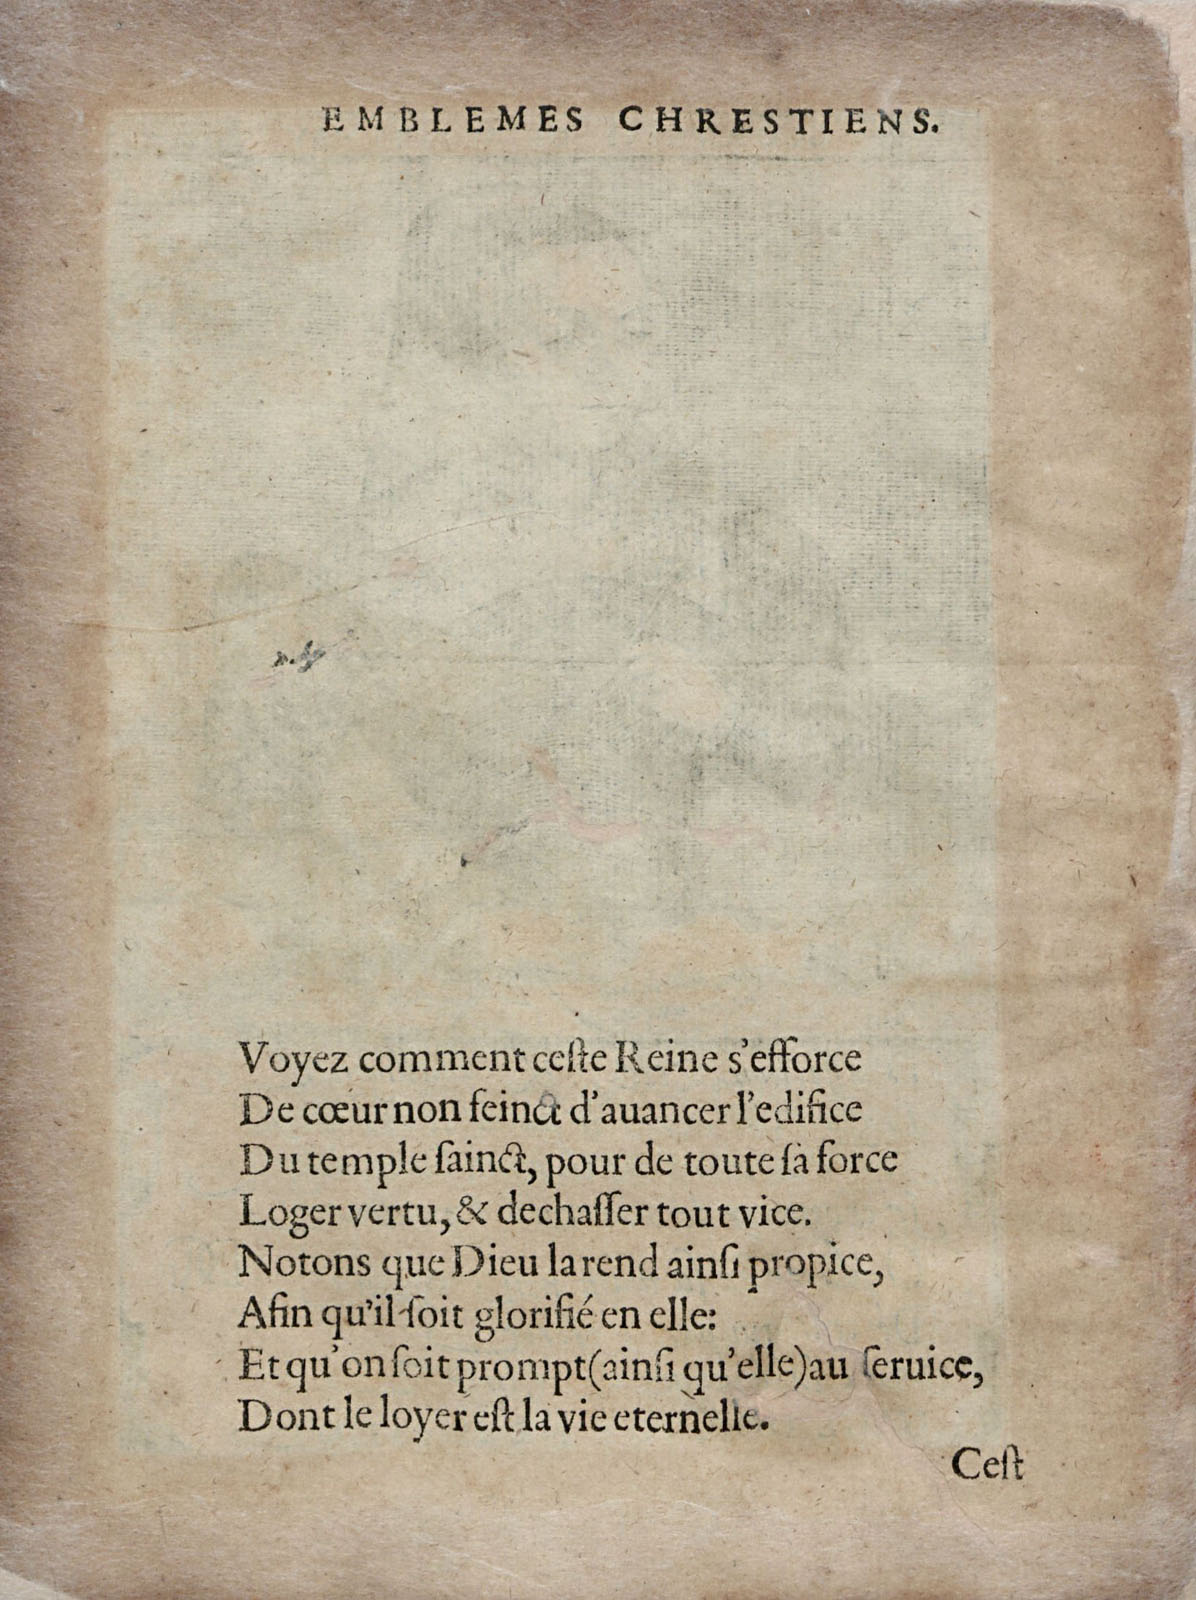 EMBLEMES CHRESTIENS.
Voyez comment ceſte Reine s'efforce
De cœur non feinct d'auancer l'edifice
Du temple ſainct, pour de toute ſa force
Loger vertu, & dechaſſer tout vice.
Notons que Dieu la rend ainſi propice,
Afin qu'il ſoit glorifié en elle:
Et qu'on ſoit prompt (ainſi qu'elle) au ſeruice,
Dont le loyer eſt la vie eternelle.
Ceſt